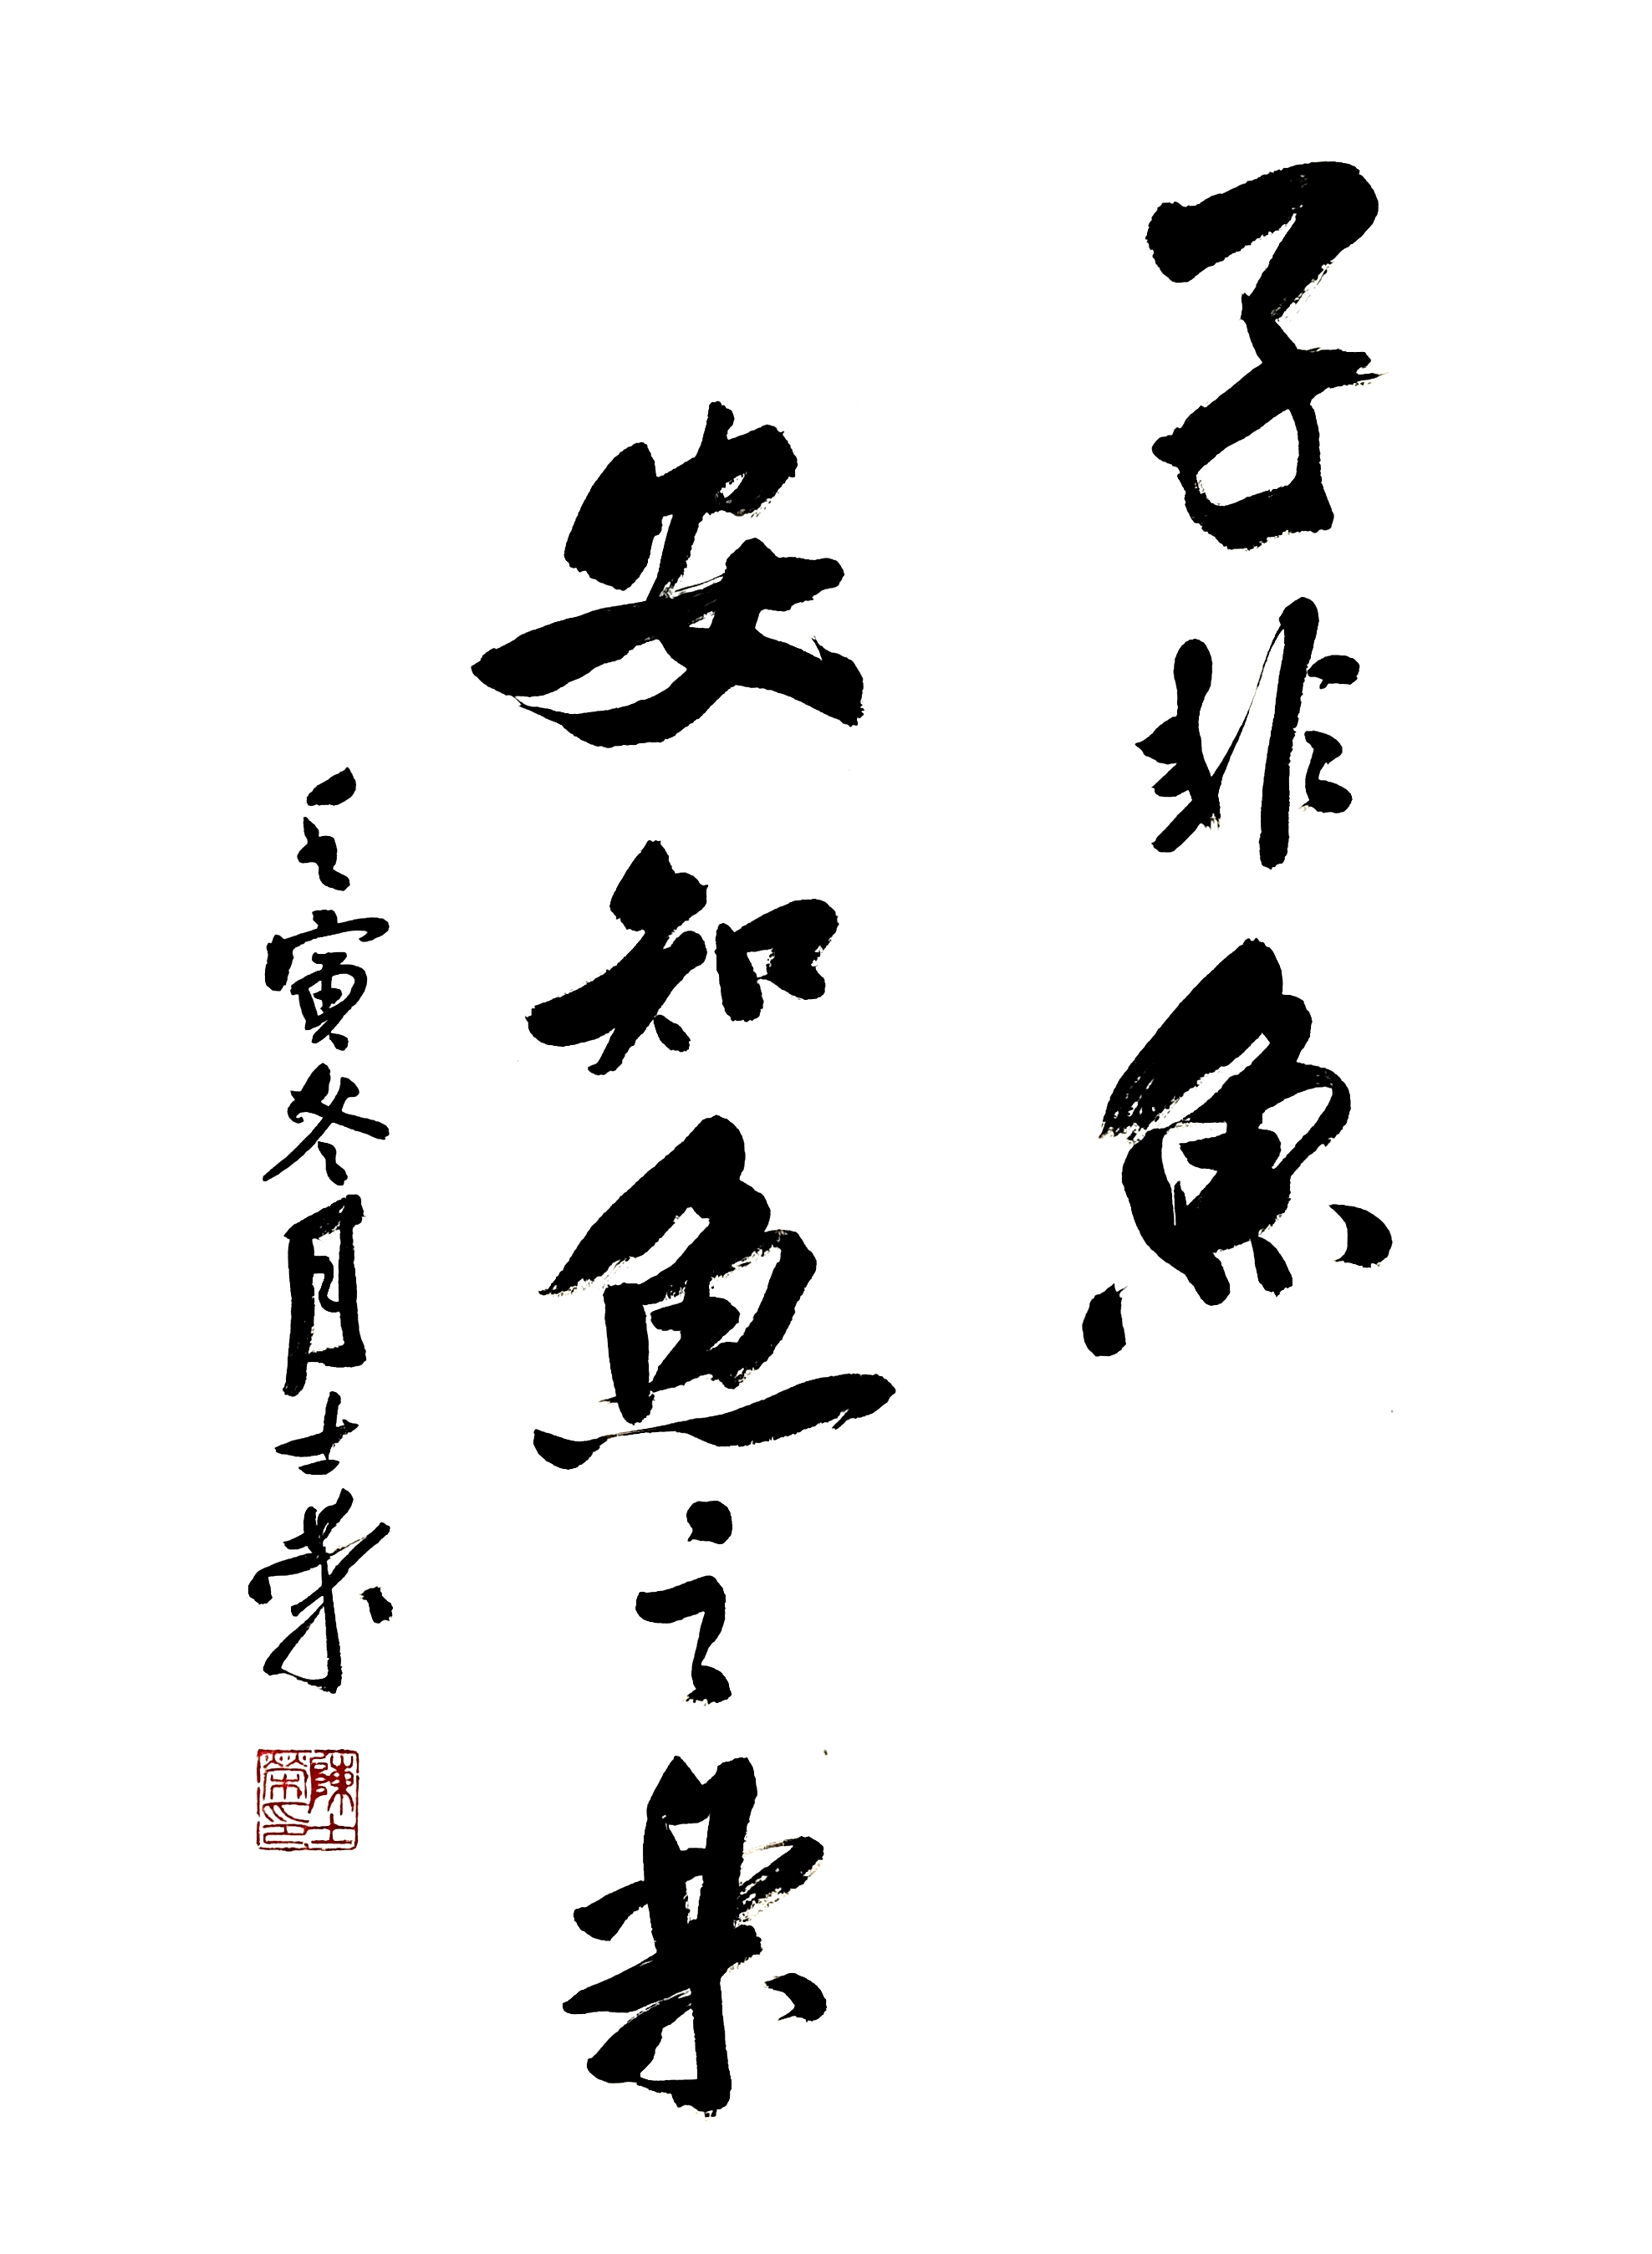 子非魚
安知魚之樂
壬寅冬月士荣
陳士榮印